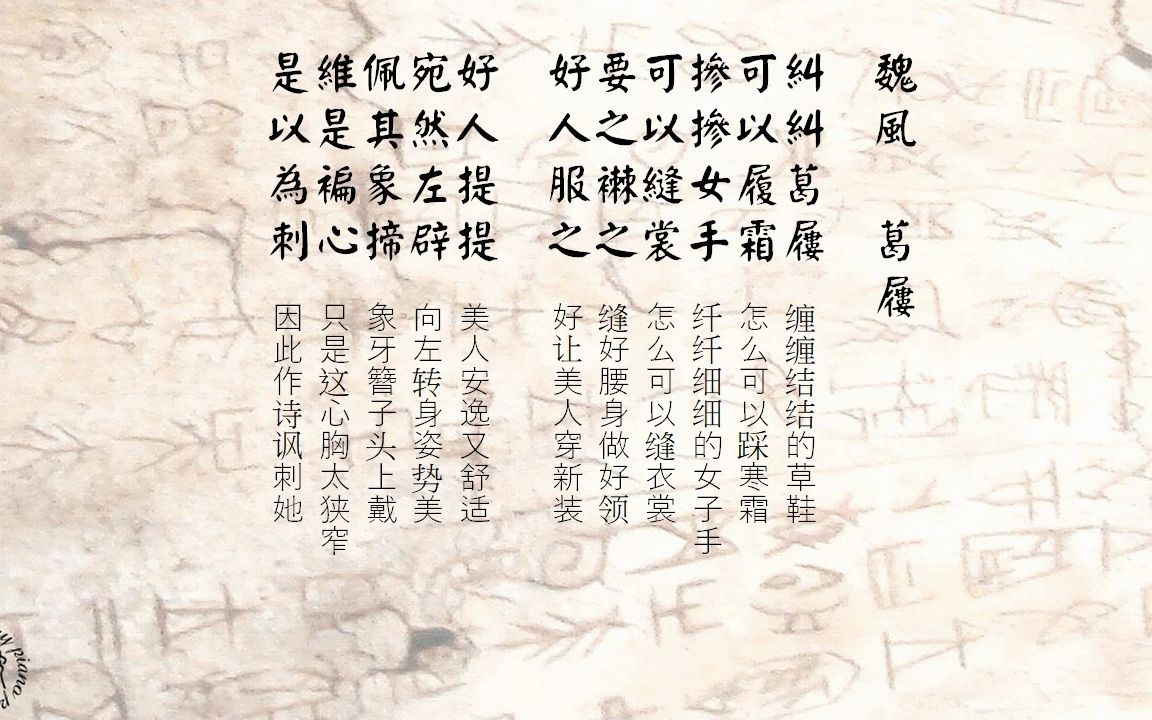 魏風 葛屨
糾糾葛屨
可以履霜
摻摻女手
可以縫裳
要之襋之
好人服之
好人提提
宛然左辟
佩其象揥
維是褊心
是以為刺
缠缠结结的草鞋
怎么可以踩寒霜
纤纤细细的女子手
怎么可以缝衣裳
缝好腰身做好领
好让美人穿新装
美人安逸又舒适
向左转身姿势美
象牙簪子头上戴
只是这心胸太狭窄
因此作诗讽刺她
piano